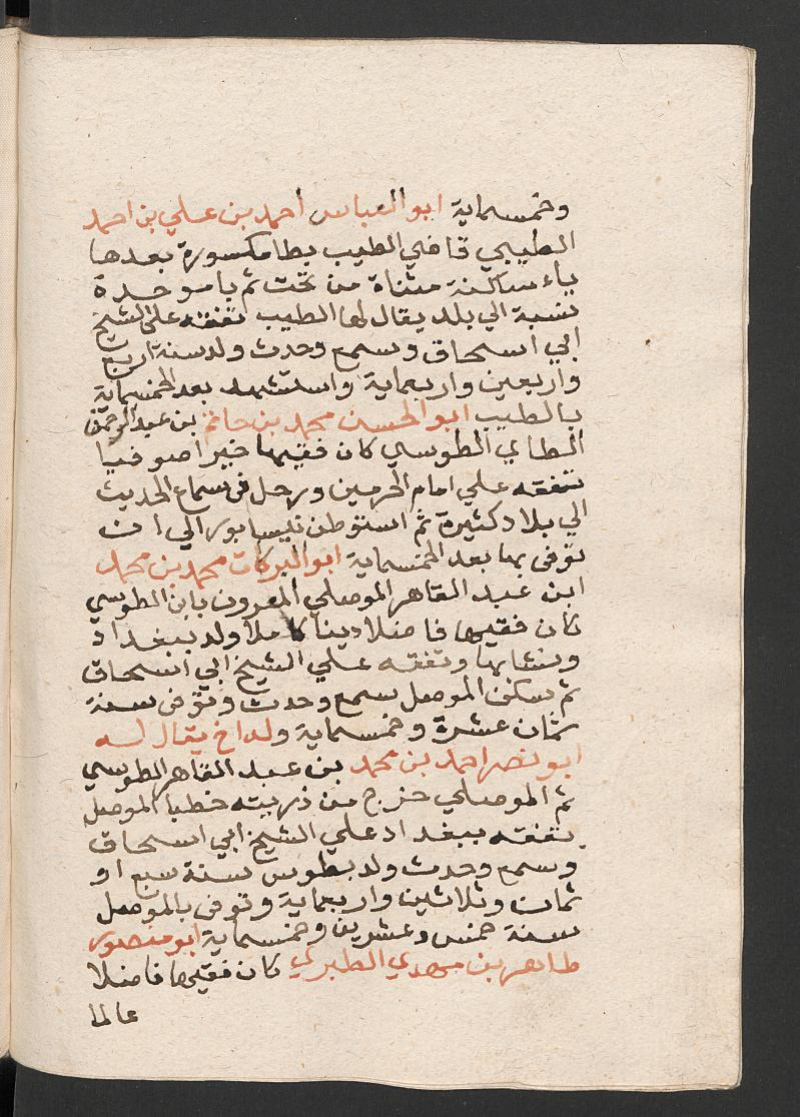 وخمسماية ابو العباس احمد بن علي بن احمد
الطيبي قاضي الطيب بطا مكسورة بعدها
ياء ساكنة مثناة من تحت ثم با موحدة
نسبة الي بلد يقال لها الطيب تفقه علي الشيخ
ابي اسحاق وسمع وحدث ولد سنة اربع
واربعين واربعماية واستشهد بعد الخمسماية
بالطيب ابو الحسن محمد بن حاتم بن عبد الرحمن
الطاي الطوسي كان فقيها خيرا صوفيا
تفقه علي امام الحرمين ورحل في سماع الحديث
الي بلاد كثيرة ثم استوطن نيسابور الي ان
توفي بها بعد الخمسماية ابو البركات محمد بن محمد
ابن عبد القاهر الموصلي المعروف بابن الطوسي
كان فقيها فاضلا دينا كاملا ولد ببغداد
ونشا بها وتفقه علي الشيخ ابي اسحاق
ثم سكن الموصل سمع وحدث وتوفي سنة
ثمان عشرة وخمسماية وله اخ يقال له
ابو نصر احمد بن محمد بن عبد القاهر الطوسي
ثم الموصلي خرج من ذريته خطبا الموصل
تفقه ببغداد علي الشيخ ابي اسحاق
وسمع وحدث ولد بطوس سنة سبع او
ثمان وثلاثين واربعماية وتوفي بالموصل
سنة خمس وعشرين وخمسماية ابو منصور
طاهر بن مهدي الطبري كان فقيها فاضلا
عالما